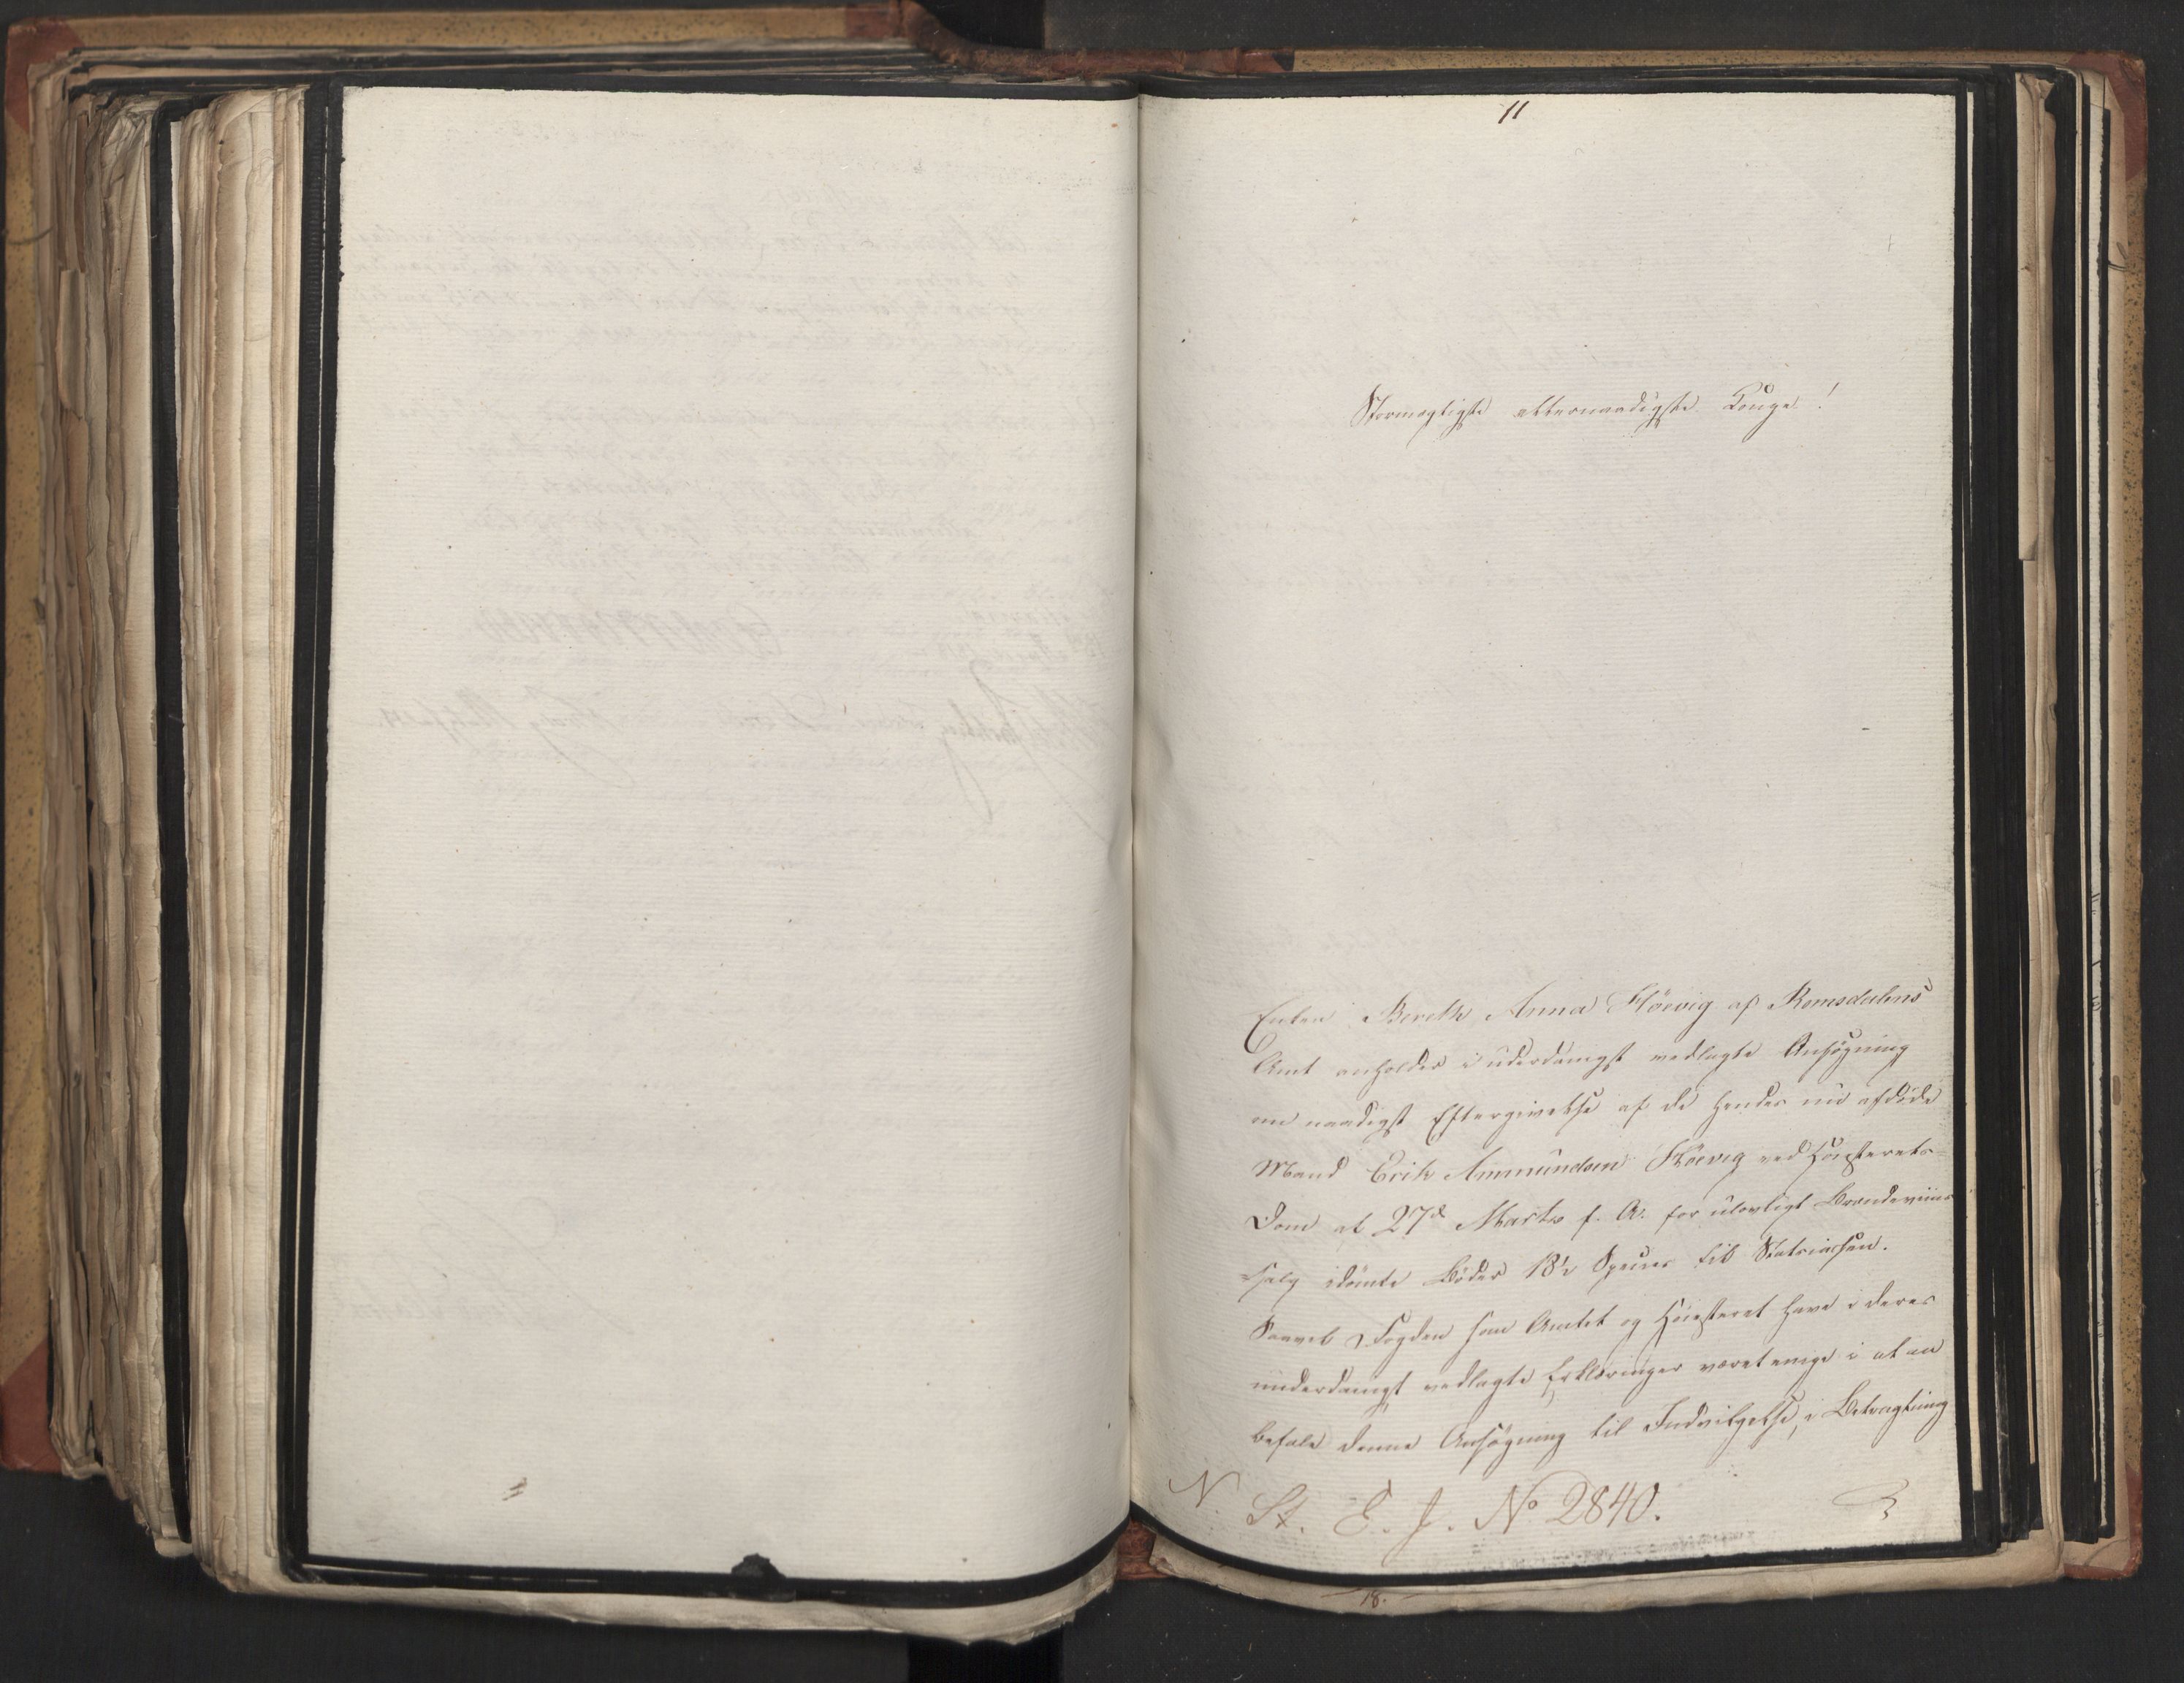 11
Stormægtigste allernaadigste Konge!
Enken Berethe Anna Höevig af Romsdalens
Amt anholder i underdanigst vedlagte Ansøgning
om naadigst Eftergivelse af de hendes nu afdöde
Mand Erik Ammundsen Höevig ved Høiesterets-
Dom af 27d Marts f. A. for ulovligt Brændeviins-
=salg idömte Böder 13½ Species til Statscassen.
Saavel Fogden som Amtet og Høiesteret have i deres
underdanigst vedlagte Erklæringer været enige i at an-
befale denne Ansøgning til Indvilgelse, i Betragtning
N. St. E. J. No 2840.
18.